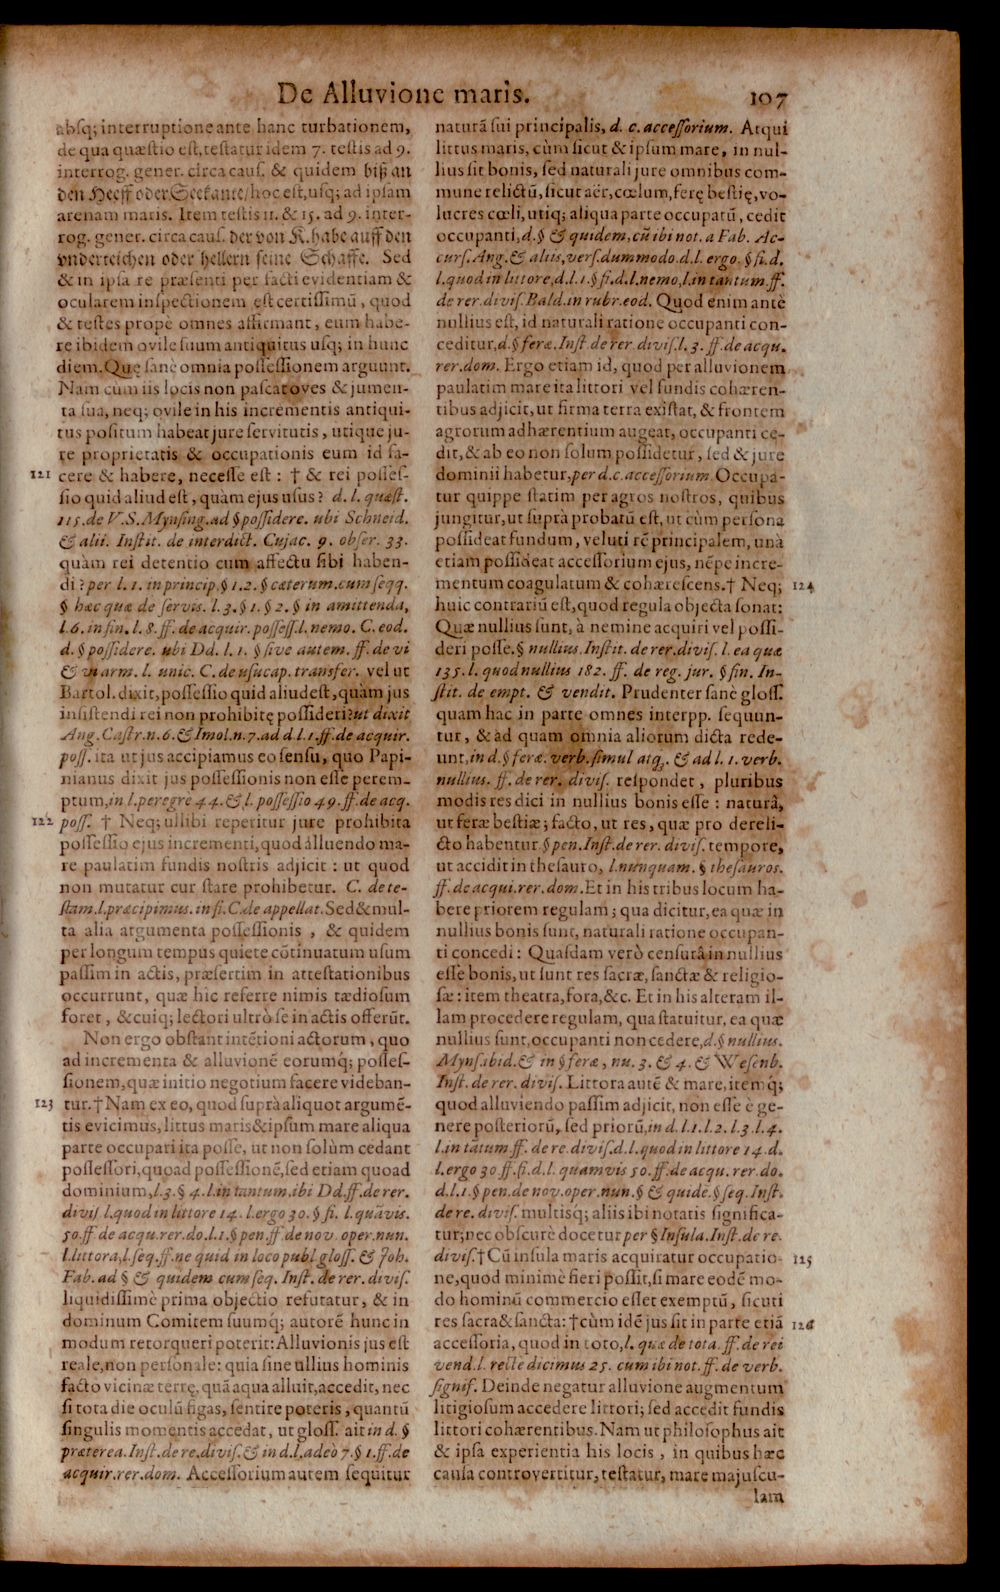 De Alluvione maris.
107
absq; interruptione ante hanc turbationem,
de qua quæstio est, testatur idem 7. testis ad 9.
interrog. gener. circa caus. & quidem biß an
den Heeff oder Seekante/hoc est, usq; ad ipsam
arenam maris. Item testis 11. & 15. ad 9. inter-
rog. gener. circa caus. der von K. habe auff den
vnderteichen oder hellern seine Schaffe. Sed
& in ipsa re præsenti per facti evidentiam &
ocularem inspectionem est certissimū, quod
& testes propè omnes affirmant, eum habe-
re ibidem ovile suum antiquitus usq; in hunc
diem. Quę sanè omnia possessionem arguunt.
Nam cùm iis locis non pascat oves & jumen-
ta sua, neq; ovile in his incrementis antiqui-
tus positum habeat jure servitutis, utique ju-
re proprietatis & occupationis eum id fa-
121 cere & habere, necesse est: † & rei posses-
sio quid aliud est, quàm ejus usus? d. l. quæst.
115. de V. S. Mynsing. ad § possidere. ubi Schneid.
& alii. Instit. de interdict. Cujac. 9. obser. 33.
quàm rei detentio cum affectu sibi haben-
di? per l. 1. in princip. § 1. 2. § cæterum. cum seqq.
§ hæc quæ de servis. l. 3. § 1. § 2. § in amittenda,
l. 6. in fin. l. 8. ff. de acquir. possess. l. nemo. C. eod.
d. § possidere. ubi Dd. l. 1. § sive autem. ff. de vi
& vi arm. l. unic. C. de usucap. transfer. vel ut
Bartol. dixit, possessio quid aliud est, quàm jus
insistendi rei non prohibitę possideri? ut dixit
Ang. Castr. n. 6. & Imol. n. 7. ad d. l. 1. ff. de acquir.
poss. ita ut jus accipiamus eo sensu, quo Papi-
nianus dixit jus possessionis non esse perem-
ptum, in l. peregre 44. & l. possessio 49. ff. de acq.
122 poss. † Neq; ullibi reperitur jure prohibita
possessio ejus incrementi, quod alluendo ma-
re paulatim fundis nostris adjicit: ut quod
non mutatur cur stare prohibetur. C. de te-
stam. l. præcipimus. in fi. C. de appellat. Sed & mul-
ta alia argumenta possessionis, & quidem
per longum tempus quiete cōtinuatum usum
passim in actis, præsertim in attestationibus
occurrunt, quæ hic referre nimis tædiosum
foret, & cuiq; lectori ultrò se in actis offerūt.
Non ergo obstant intētioni actorum, quo
ad incrementa & alluvionē eorumq́; posses-
sionem, quæ initio negotium facere videban-
123 tur. † Nam ex eo, quod suprà aliquot argumē-
tis evicimus, littus maris & ipsum mare aliqua
parte occupari ita posse, ut non solùm cedant
possessori, quoad possessionē, sed etiam quoad
dominium, l. 3. § 4. l. in tantum. ibi Dd. ff. de rer.
divis l. quod in littore 14. l. ergo 30. § fi. l. quāvis.
50. ff. de acqu. rer. do. l. 1. § pen. ff. de nov. oper. nun.
l. littora, l. seq. ff. ne quid in loco publ. gloss. & Joh.
Fab. ad § & quidem cum seq. Inst. de rer. divis.
liquidissimè prima objectio refutatur, & in
dominum Comitem suumq́; autorē hunc in
modum retorqueri poterit: Alluvionis jus est
reale, non personale: quia sine ullius hominis
facto vicinæ terrę, quā aqua alluit, accedit, nec
si tota die oculū figas, sentire poteris, quantū
singulis momentis accedat, ut gloss. ait in d. §
præterea. Inst. de re. divis. & in d. l. adeò 7. § 1. ff. de
acquir. rer. dom. Accessorium autem sequitur
naturā sui principalis, d. c. accessorium. Atqui
littus maris, cùm sicut & ipsum mare, in nul-
lius sit bonis, sed naturali jure omnibus com-
mune relictū, sicut aër, cœlum, ferę bestię, vo-
lucres cœli, utiq; aliqua parte occupatū, cedit
occupanti, d. § & quidem, cū ibi not. a Fab. Ac-
curs. Ang. & aliis, vers. dummodo. d. l. ergo. § fi. d.
l. quod in littore, d. l. 1. § fi. d. l. nemo, l. in tantum. ff.
de rer. divis. Bald. in rubr. eod. Quod enim antè
nullius est, id naturali ratione occupanti con-
ceditur, d. § feræ. Inst. de rer. divis. l. 3. ff. de acqu.
rer. dom. Ergo etiam id, quod per alluvionem
paulatim mare ita littori vel fundis cohæren-
tibus adjicit, ut firma terra existat, & frontem
agrorum adhærentium augeat, occupanti ce-
dit, & ab eo non solum possidetur, sed & jure
dominii habetur, per d. c. accessorium Occupa-
tur quippe statim per agros nostros, quibus
jungitur, ut suprà probatū est, ut cùm persona
possideat fundum, veluti rē principalem, unà
etiam possideat accessorium ejus, nēpe incre-
mentum coagulatum & cohærescens. † Neq; 124
huic contrariū est, quod regula objecta sonat:
Quæ nullius sunt, à nemine acquiri vel possi-
deri posse. § nullius. Instit. de rer. divis. l. ea quæ
135. l. quod nullius 182. ff. de reg. jur. § fin. In-
stit. de empt. & vendit. Prudenter sanè gloss.
quam hac in parte omnes interpp. sequun-
tur, & ad quam omnia aliorum dicta rede-
unt, in d. § feræ. verb. simul atq;. & ad l. 1. verb.
nullius. ff. de rer. divis. respondet, pluribus
modis res dici in nullius bonis esse: naturâ,
ut feræ bestiæ; facto, ut res, quæ pro dereli-
cto habentur. § pen. Inst. de rer. divis. tempore,
ut accidit in thesauro, l. nunquam. § thesauros.
ff. de acqui. rer. dom. Et in his tribus locum ha-
bere priorem regulam; qua dicitur, ea quæ in
nullius bonis sunt, naturali ratione occupan-
ti concedi: Quasdam verò censurâ in nullius
esse bonis, ut sunt res sacræ, sanctæ & religio-
sæ: item theatra, fora, &c. Et in his alteram il-
lam procedere regulam, qua statuitur, ea quæ
nullius sunt, occupanti non cedere, d. § nullius.
Myns. ibid. & in § feræ, nu. 3. & 4. & Wesenb.
Inst. de rer. divis. Littora autē & mare, itemq́;
quod alluviendo passim adjicit, non esse è ge-
nere posteriorū, sed priorū, in d. l. 1. l. 2. l. 3. l. 4.
l. in tātum. ff. de re. divis. d. l. quod in littore 14. d.
l. ergo 30. ff. fi. d. l. quamvis 50. ff. de acqu. rer. do.
d. l. 1. § pen. de nov. oper. nun. § & quidē. § seq. Inst.
de re. divis. multisq; aliis ibi notatis significa-
tur; nec obscurè docetur per § Insula. Inst. de re.
divis. † Cū insula maris acquiratur occupatio- 125
ne, quod minimè fieri possit, si mare eodē mo-
do hominū commercio esset exemptū, sicuti
res sacra & sancta: † cùm idē jus sit in parte etiā 126
accessoria, quod in toto, l. quæ de tota. ff. de rei
vend. l. rectè dicimus 25. cum ibi not. ff. de verb.
signif. Deinde negatur alluvione augmentum
litigiosum accedere littori; sed accedit fundis
littori cohærentibus. Nam ut philosophus ait
& ipsa experientia his locis, in quibus hæc
causa controvertitur, testatur, mare majuscu-
lam